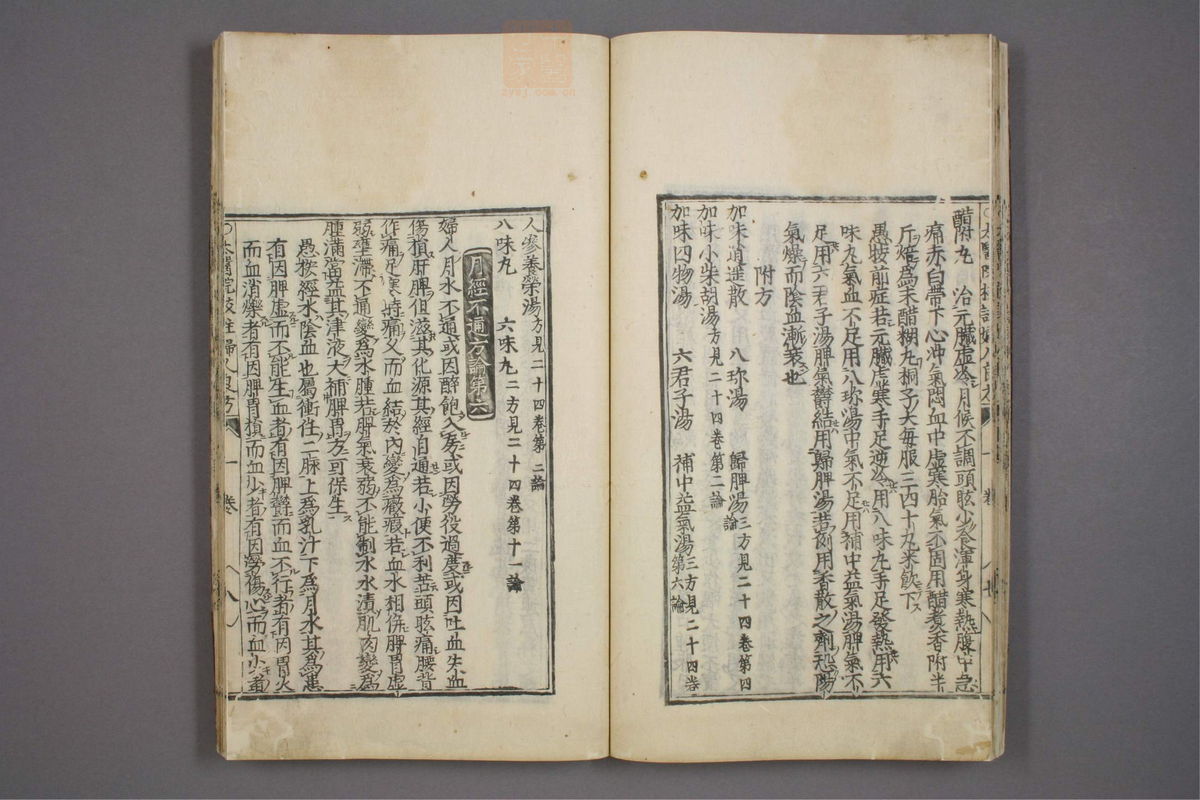 醋附丸 治元臟虛冷月候不調頭眩少食渾身寒熱腹中急
痛赤白帶下心忡氣悶血中虛寒胎氣不固用醋煮香附半
斤焙爲末醋糊丸桐子大每服三四十丸米飲下
愚按前症若元臟虛寒手足逆冷用八味丸手足發熱用六
味丸氣血不足用八珍湯中氣不足用補中益氣湯脾氣不
足用六君子湯脾氣鬱結用歸脾湯若例用香散之劑恐陽
氣燥而陰血漸衰也
附方
加味逍遙散 八珍湯 歸脾湯三方見二十四卷第四論
加味小柴胡湯方見二十四卷第二論
加味四物湯 六君子湯 補中益氣湯三方見二十四卷第六論
人參養榮湯方見二十四卷第二論
八味丸 六味丸二方見二十四卷第十一論
月經不通方論第六
婦人月水不通或因醉飽入房或因勞役過度或因吐血失血
傷損肝脾但滋其化源其經自通若小便不利苦頭眩痛腰背
作痛足寒時痛久而血結於內變爲癥瘕若血水相併脾胃虛
弱壅滯不通變爲水腫若脾氣衰弱不能制水水漬肌肉變爲
腫滿當益其津液大補脾胃方可保生
愚按經水陰血也屬衝任二脈上爲乳汁下爲月水其爲患
有因脾虛而不能生血者有因脾鬱而血不行者有因胃火
而血消爍者有因脾胃損而血少者有因勞傷心而血少者
○太醫院校註婦人良方 一卷 八